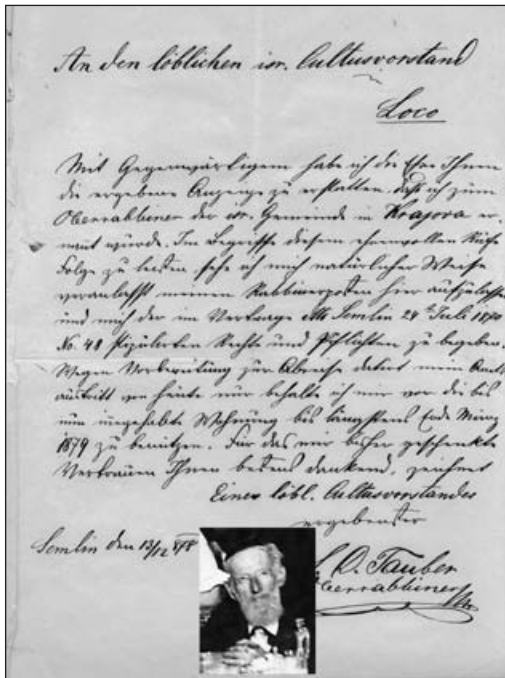 An den löblichen isr. Cultusvorstand
Loco
Mit Gegenwärtigem habe ich die Ehre Ihnen
die ergebene Anzeige zu erstatten, daß ich zum
Oberrabbiner der isr. Gemeinde in Krajova er-
nannt wurde. Im Begriffe diesem ehrenvollen Rufe
Folge zu leisten, sehe ich mich natürlicher Weise
veranlasst meinen Rabbinerposten hier aufzulassen
und mich der im Vertrage dto Semlin 24t Juli 1870
No. 48 stipulirten Rechte und Pflichten zu begeben.
Wegen Vorbereitung zur Abreise datirt mein Amts
austritt von heute nur behalte ich mir vor die bis
nun innegehabte Wohnung bis längstens Ende März
1879 zu benützen. Für das mir bisher geschenkte
Vertrauen Ihnen bestens dankend, zeichnet
Eines löbl. Cultusvorstandes
ergebenster
Semlin den 13/12
D. Tauber
Oberrabbiner